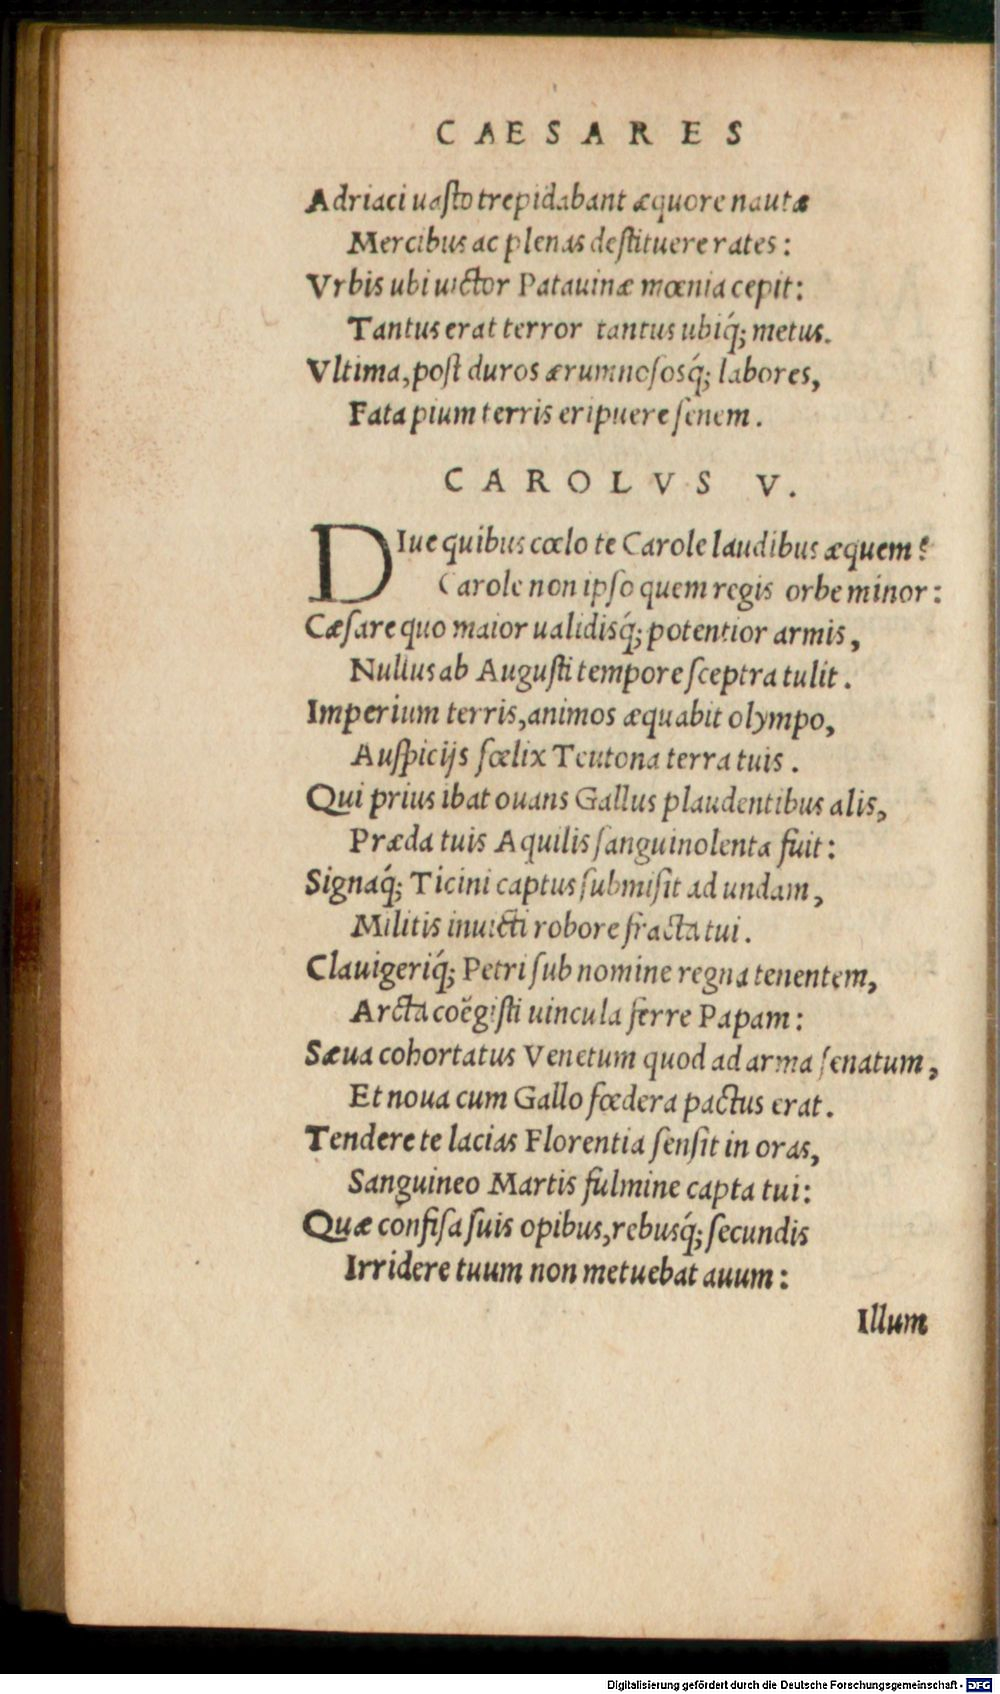 CAESARES
Adriaci uaſto trepidabant æquore nautæ
Mercibus ac plenas deſtituere rates:
Vrbis ubi uictor Patauinæ mœnia cepit:
Tantus erat terror tantus ubiq́; metus.
Vltima, poſt duros ærumnoſosq́; labores,
Fata pium terris eripuere ſenem.
CAROLVS V.
DIue quibus cœlo te Carole laudibus æquem?
Carole non ipſo quem regis orbe minor:
Cæſare quo maior ualidisq́; potentior armis,
Nullus ab Auguſti tempore ſceptra tulit.
Imperium terris, animos æquabit olympo,
Auſpicijs fœlix Teutona terra tuis.
Qui prius ibat ouans Gallus plaudentibus alis,
Præda tuis Aquilis ſanguinolenta fuit:
Signaq́; Ticini captus ſubmiſit ad undam,
Militis inuicti robore fracta tui.
Clauigeriq́; Petri ſub nomine regna tenentem,
Arcta coëgiſti uincula ferre Papam:
Sæua cohortatus Venetum quod ad arma ſenatum,
Et noua cum Gallo fœdera pactus erat.
Tendere te lacias Florentia ſenſit in oras,
Sanguineo Martis fulmine capta tui:
Quæ confiſa ſuis opibus, rebusq́; ſecundis
Irridere tuum non metuebat auum:
Illum
Digitalisierung gefördert durch die Deutsche Forschungsgemeinschaft - DFG